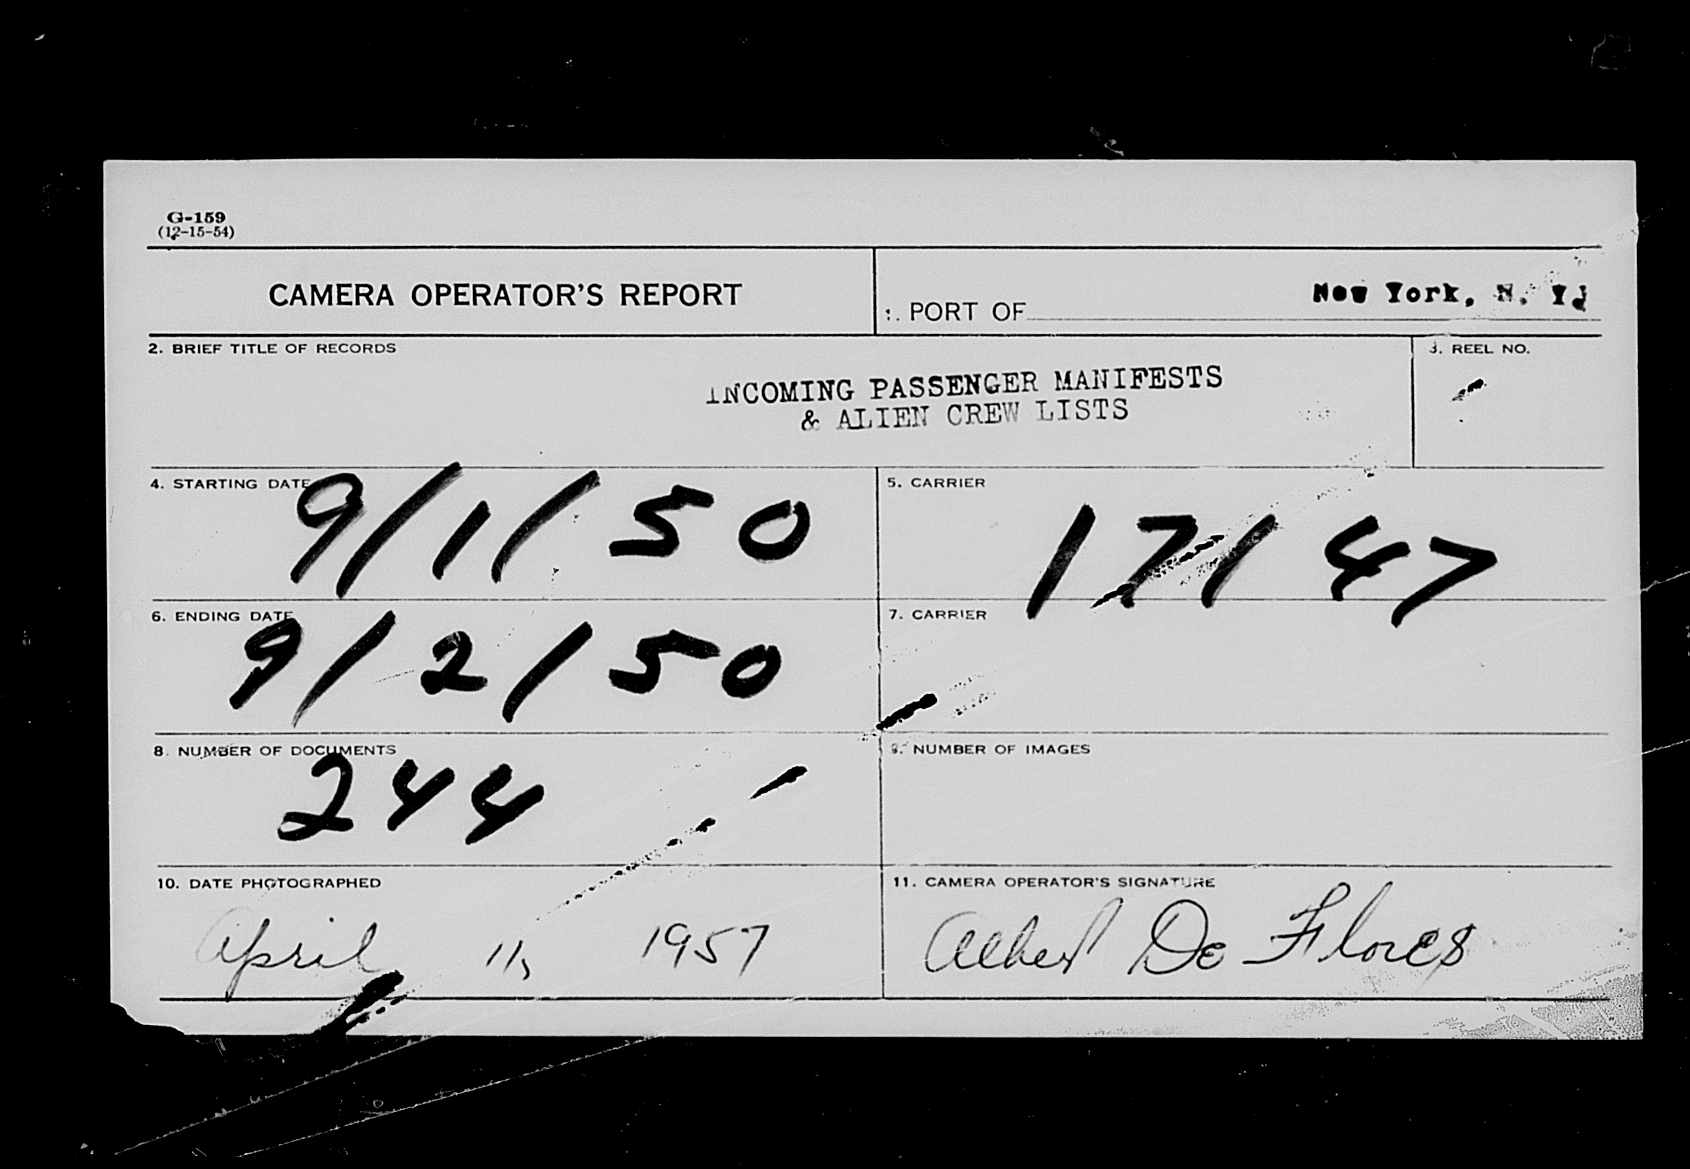 G-159
(12-15-54)
CAMERA OPERATOR'S REPORT
1. PORT OF New York, N. Y.
2. BRIEF TITLE OF RECORDS
3. REEL NO.
INCOMING PASSENGER MANIFESTS
& ALIEN CREW LISTS
4. STARTING DATE
9/1/50
5. CARRIER
17147
6. ENDING DATE
9/2/50
7. CARRIER
8. NUMBER OF DOCUMENTS
244
9. NUMBER OF IMAGES
10. DATE PHOTOGRAPHED
April 11, 1957
11. CAMERA OPERATOR'S SIGNATURE
Albert De Flores